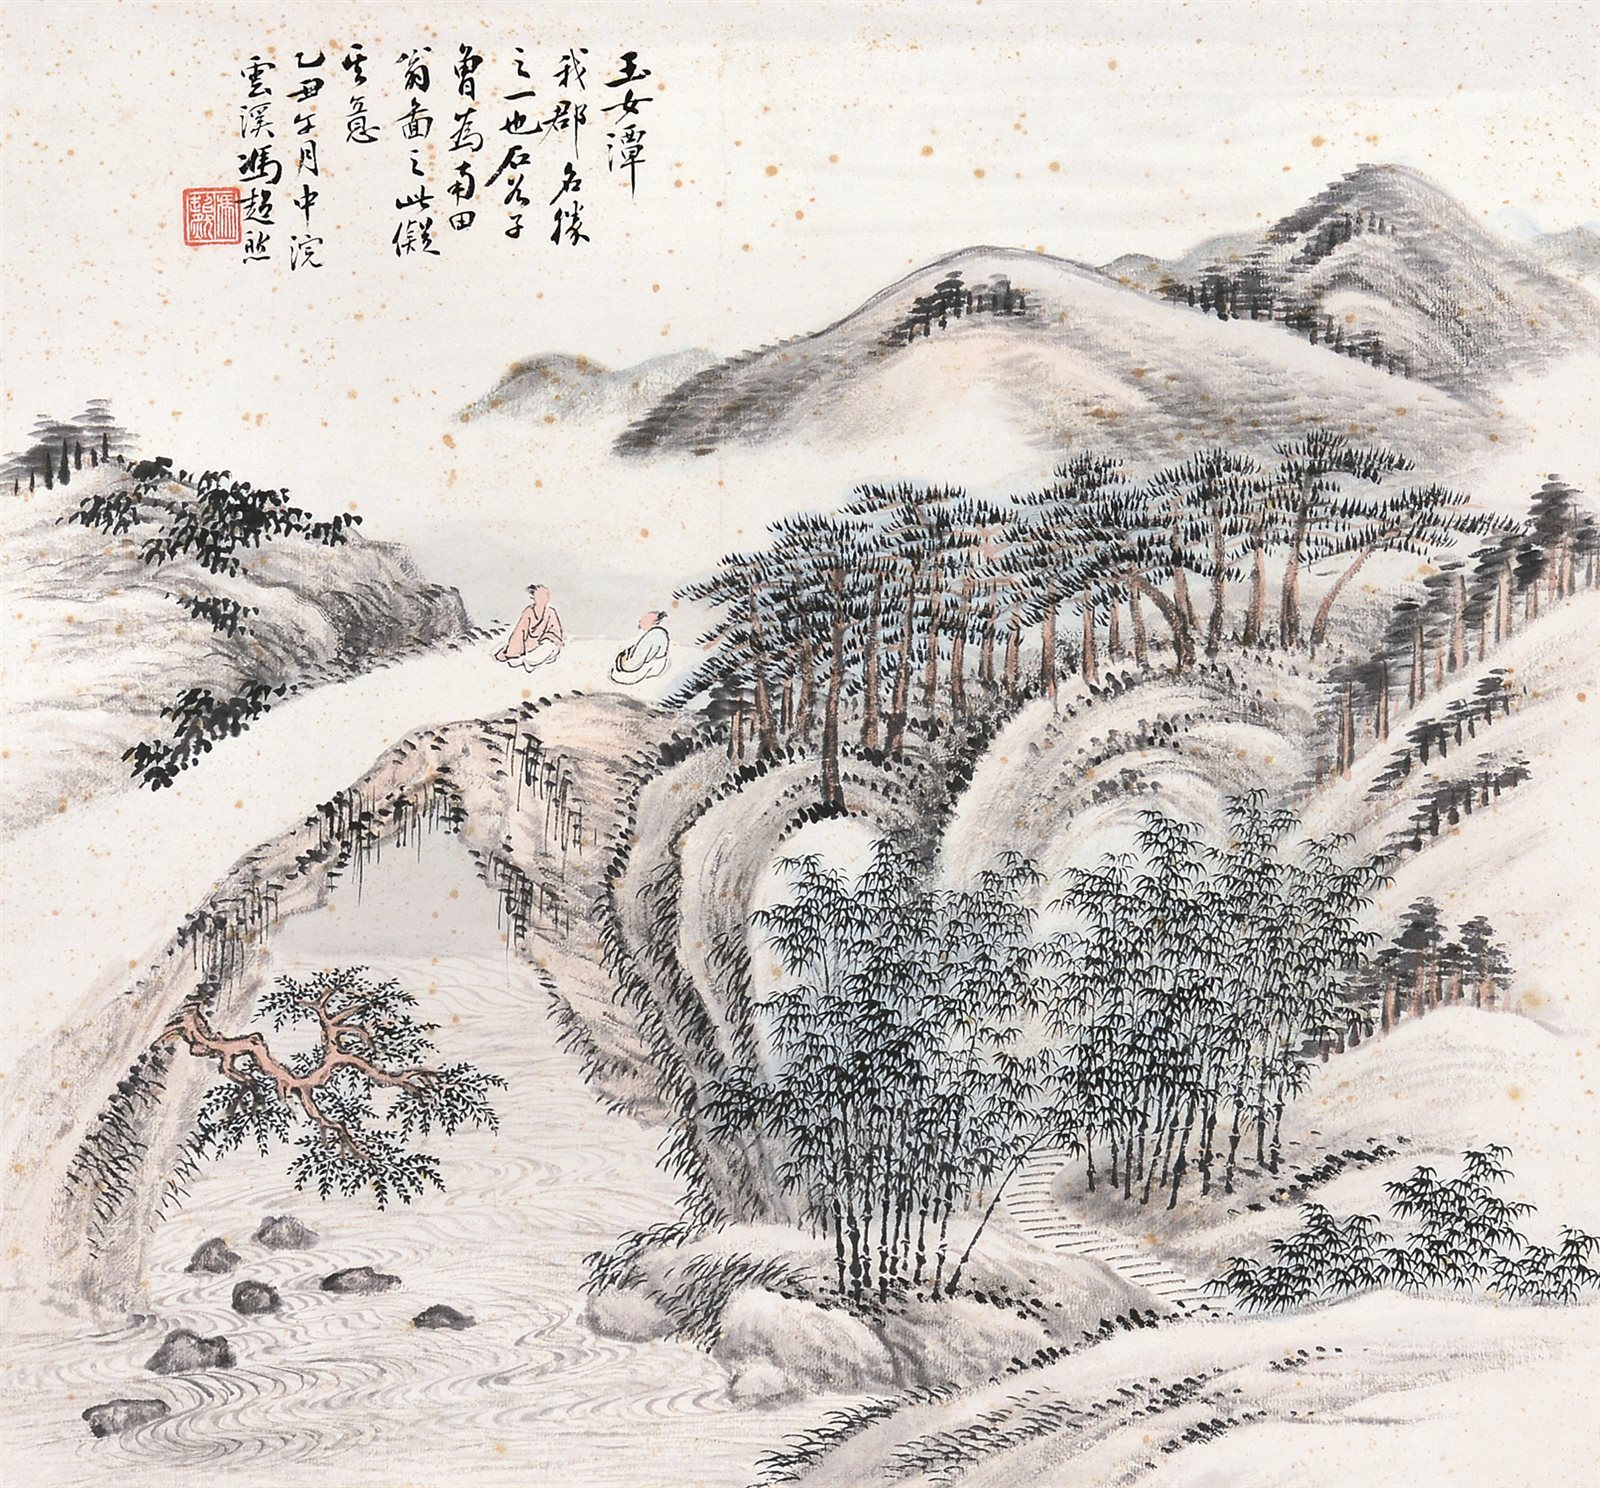 玉女潭
我郡名勝
之一也石谷子
曾為南田
翁圖之此儗
其意
乙丑午月中浣
雲溪馮超然
馮超然